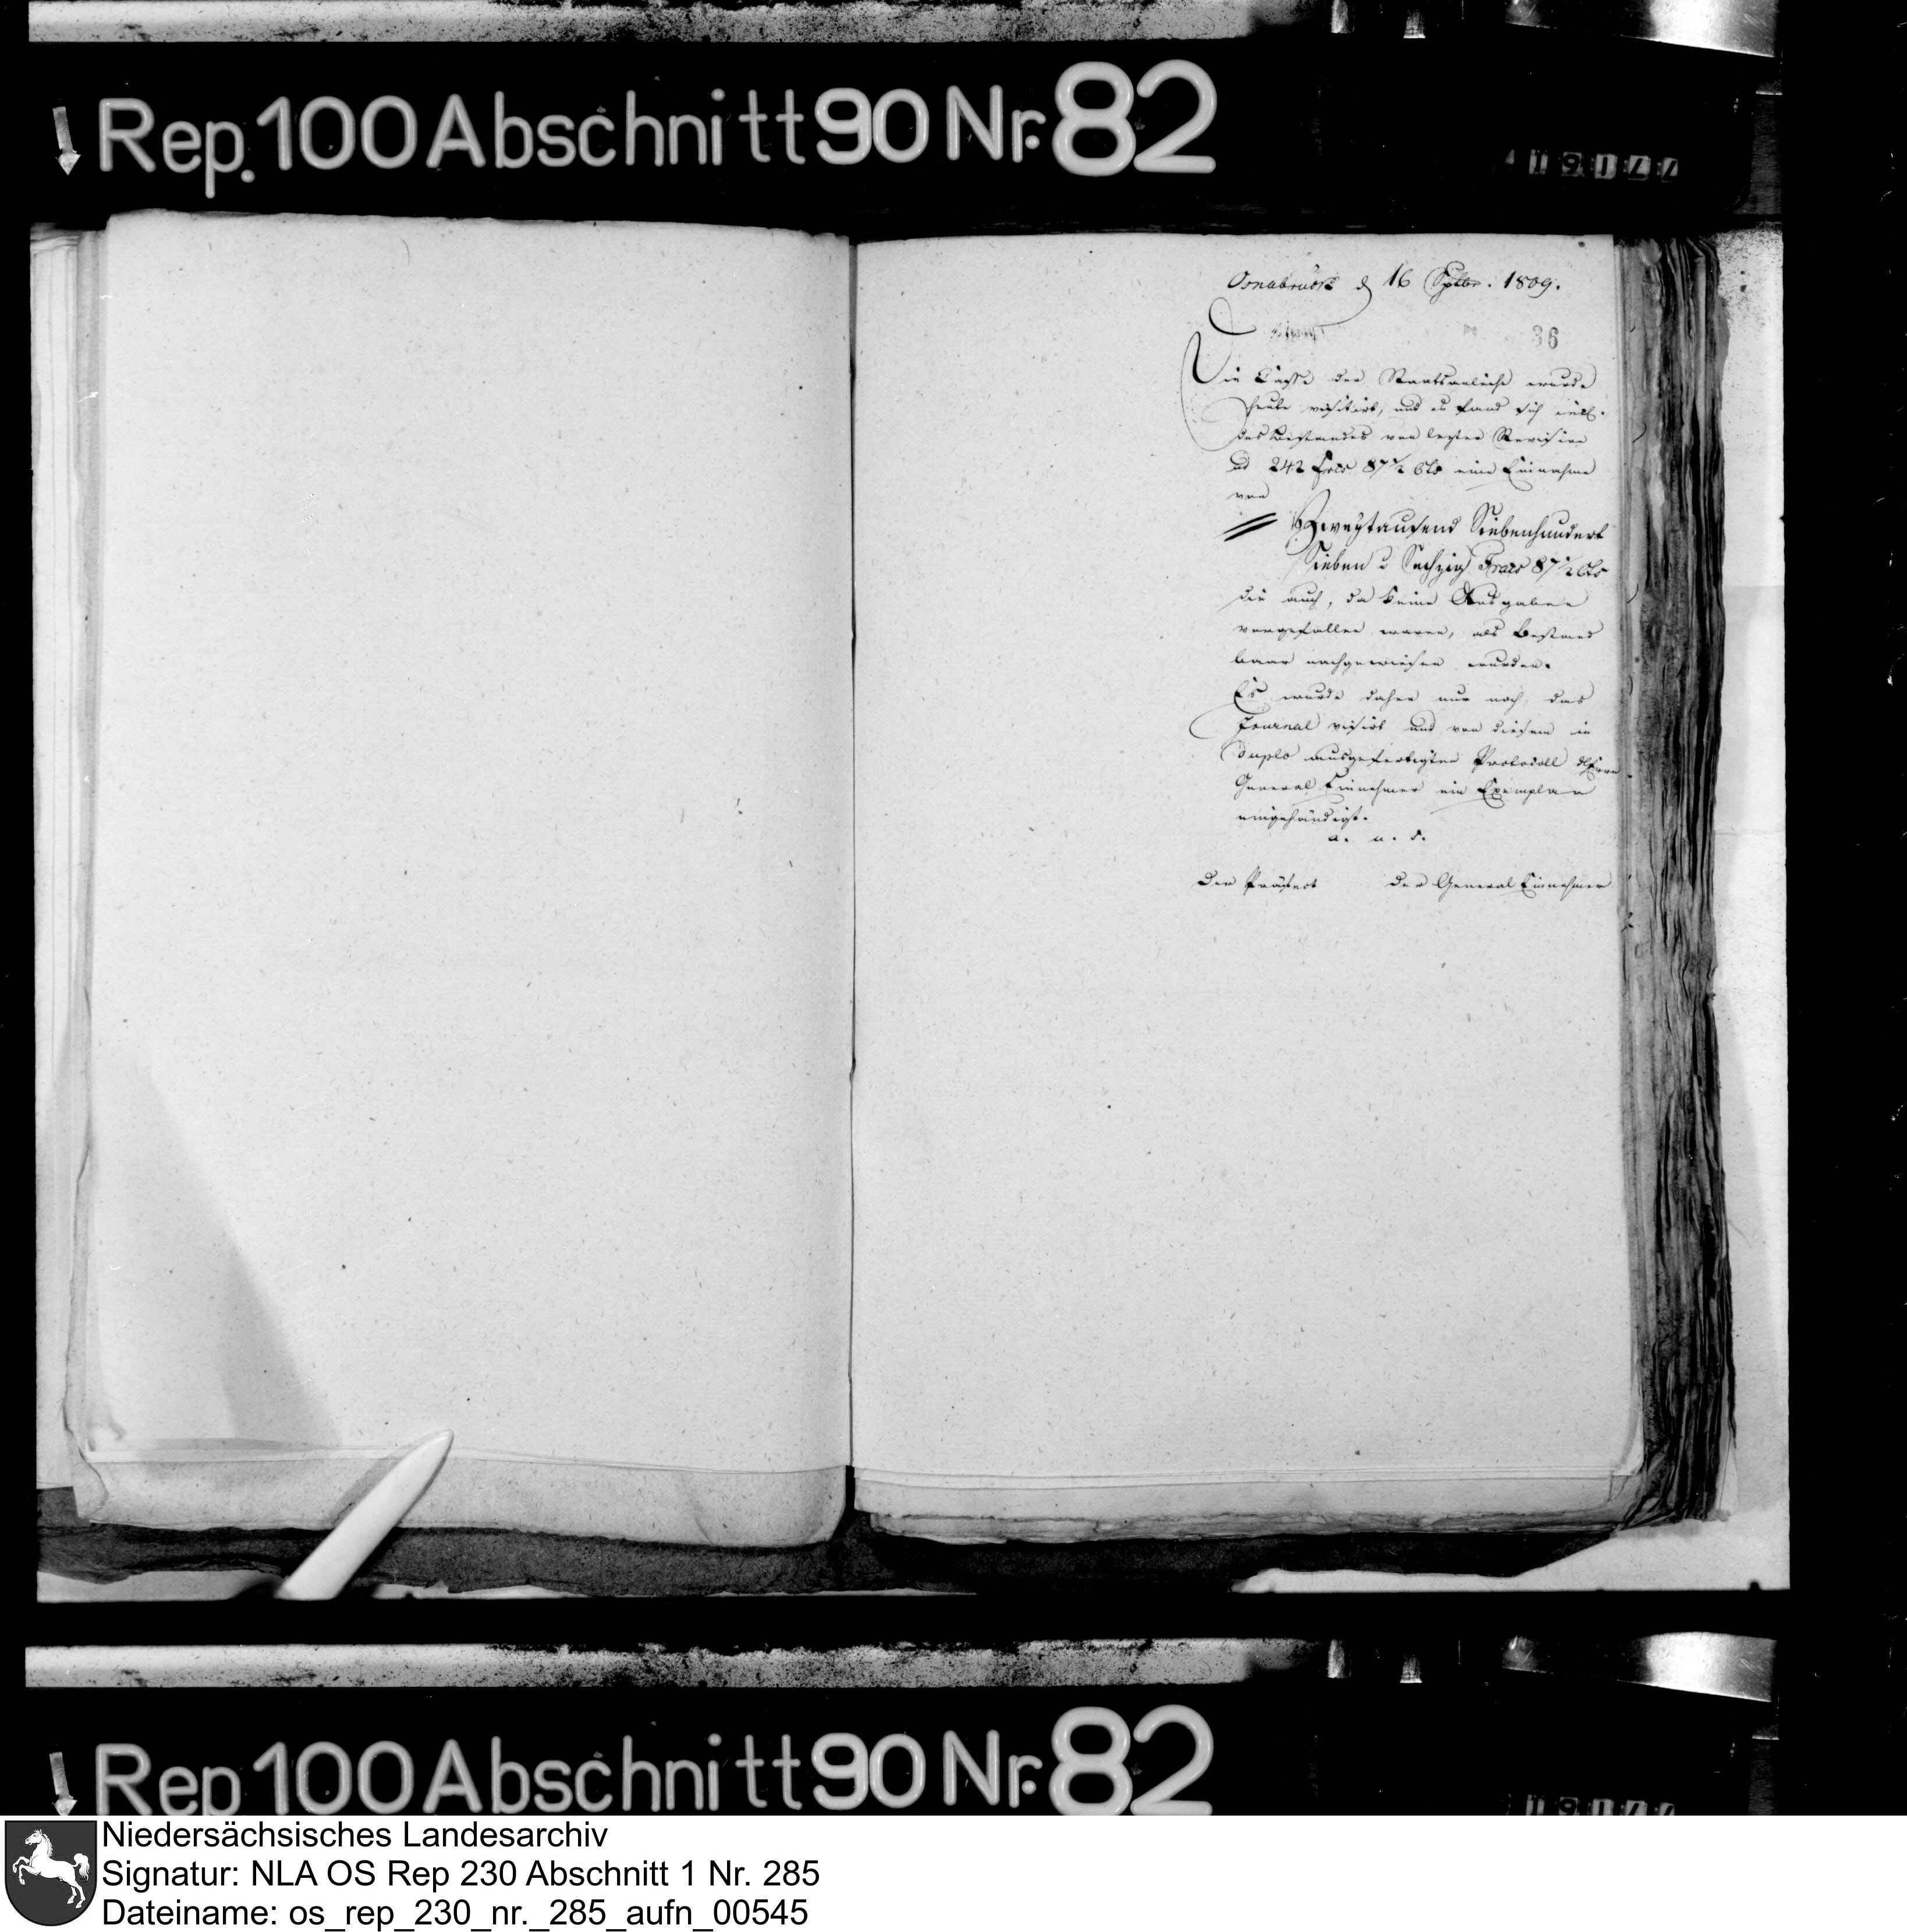 Rep. 100 Abschnitt 90 Nr. 82
Osnabrück d 16 Sptbr. 1809.
36
Die Casse der Staatsanleihe wurde
heute visitirt, und es fand sich incl.
des Bestandes von letzter Revision
ad 242 Frcs 87½ Cts eine Einnahme
von
Zweytausend Siebenhundert
Sieben u Sechzig Francs 87½ Cts
die auch, da keine Ausgaben
vorgefallen waren, als Bestand
baar nachgewiesen wurden.
Es wurde daher nur noch das
Journal visirt und von diesem in
duplo ausgefertigten Protocoll
General Einnehmer ein Exemplar
eingehändigt.
a. u. s.
Der Präfect der General Einnehmer
Rep 100 Abschnitt 90 Nr. 82
Niedersächsisches Landesarchiv
Signatur: NLA OS Rep 230 Abschnitt 1 Nr. 285
Dateiname: os_rep_230_nr._285_aufn_00545